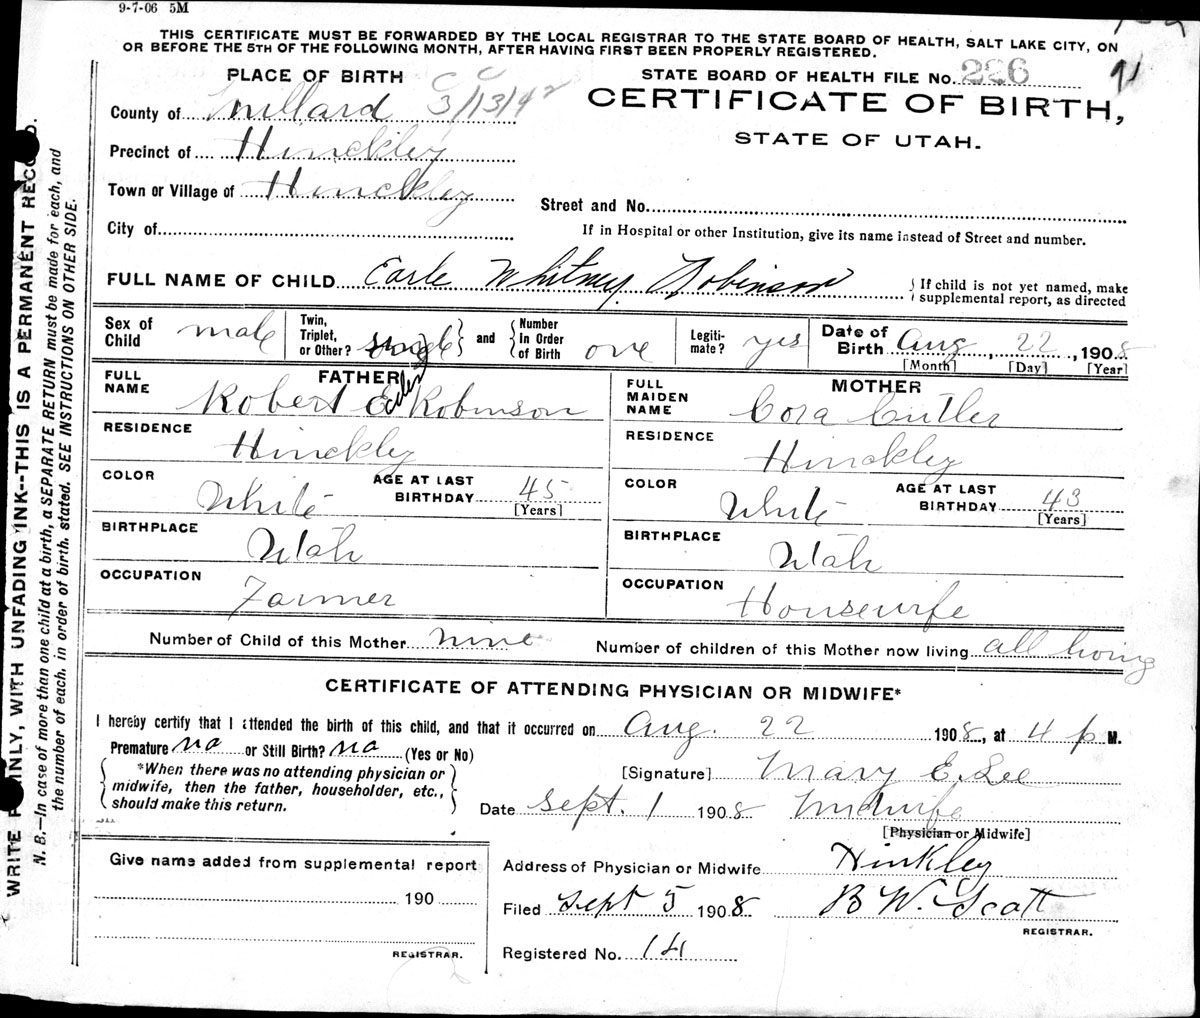 9-7-06 5M
THIS CERTIFICATE MUST BE FORWARDED BY THE LOCAL REGISTRAR TO THE STATE BOARD OF HEALTH, SALT LAKE CITY, ON
OR BEFORE THE 5TH OF THE FOLLOWING MONTH, AFTER HAVING FIRST BEEN PROPERLY REGISTERED.
PLACE OF BIRTH
CC 3/13/42
STATE BOARD OF HEALTH FILE No. 226
91
CERTIFICATE OF BIRTH,
STATE OF UTAH.
County of Millard
Precinct of Hinckley
Town or Village of Hinckley
City of
Street and No.
If in Hospital or other Institution, give its name instead of Street and number.
FULL NAME OF CHILD Earle Whitney Robinson
If child is not yet named, make
supplemental report, as directed
Sex of Child male
Twin, Triplet, or Other? single and Number In Order of Birth one
Legiti-mate? yes
Date of Birth Aug, 22, 1908
[Month] [Day] [Year]
FATHER
FULL NAME Robert E Robinson
RESIDENCE Hinckley
COLOR White AGE AT LAST BIRTHDAY 45 [Years]
BIRTHPLACE Utah
OCCUPATION Farmer
MOTHER
FULL MAIDEN NAME Cora Cutler
RESIDENCE Hinckley
COLOR White AGE AT LAST BIRTHDAY 43 [Years]
BIRTHPLACE Utah
OCCUPATION Housewife
Number of Child of this Mother nine Number of children of this Mother now living all living
CERTIFICATE OF ATTENDING PHYSICIAN OR MIDWIFE*
I hereby certify that I attended the birth of this child, and that it occurred on Aug. 22 1908, at 4 p M.
Premature no or Still Birth? no (Yes or No)
*When there was no attending physician or
midwife, then the father, householder, etc.,
should make this return.
[Signature] Mary E. Lee
Date Sept. 1 1908 Midwife
[Physician or Midwife]
Give name added from supplemental report
190
REGISTRAR.
Address of Physician or Midwife Hinkley
Filed Sept 5 1908 B W. Scott
REGISTRAR.
Registered No. 141
WRITE PLAINLY, WITH UNFADING INK--THIS IS A PERMANENT RECORD.
N. B.—In case of more than one child at a birth, a SEPARATE RETURN must be made for each, and
the number of each, in order of birth, stated. SEE INSTRUCTIONS ON OTHER SIDE.